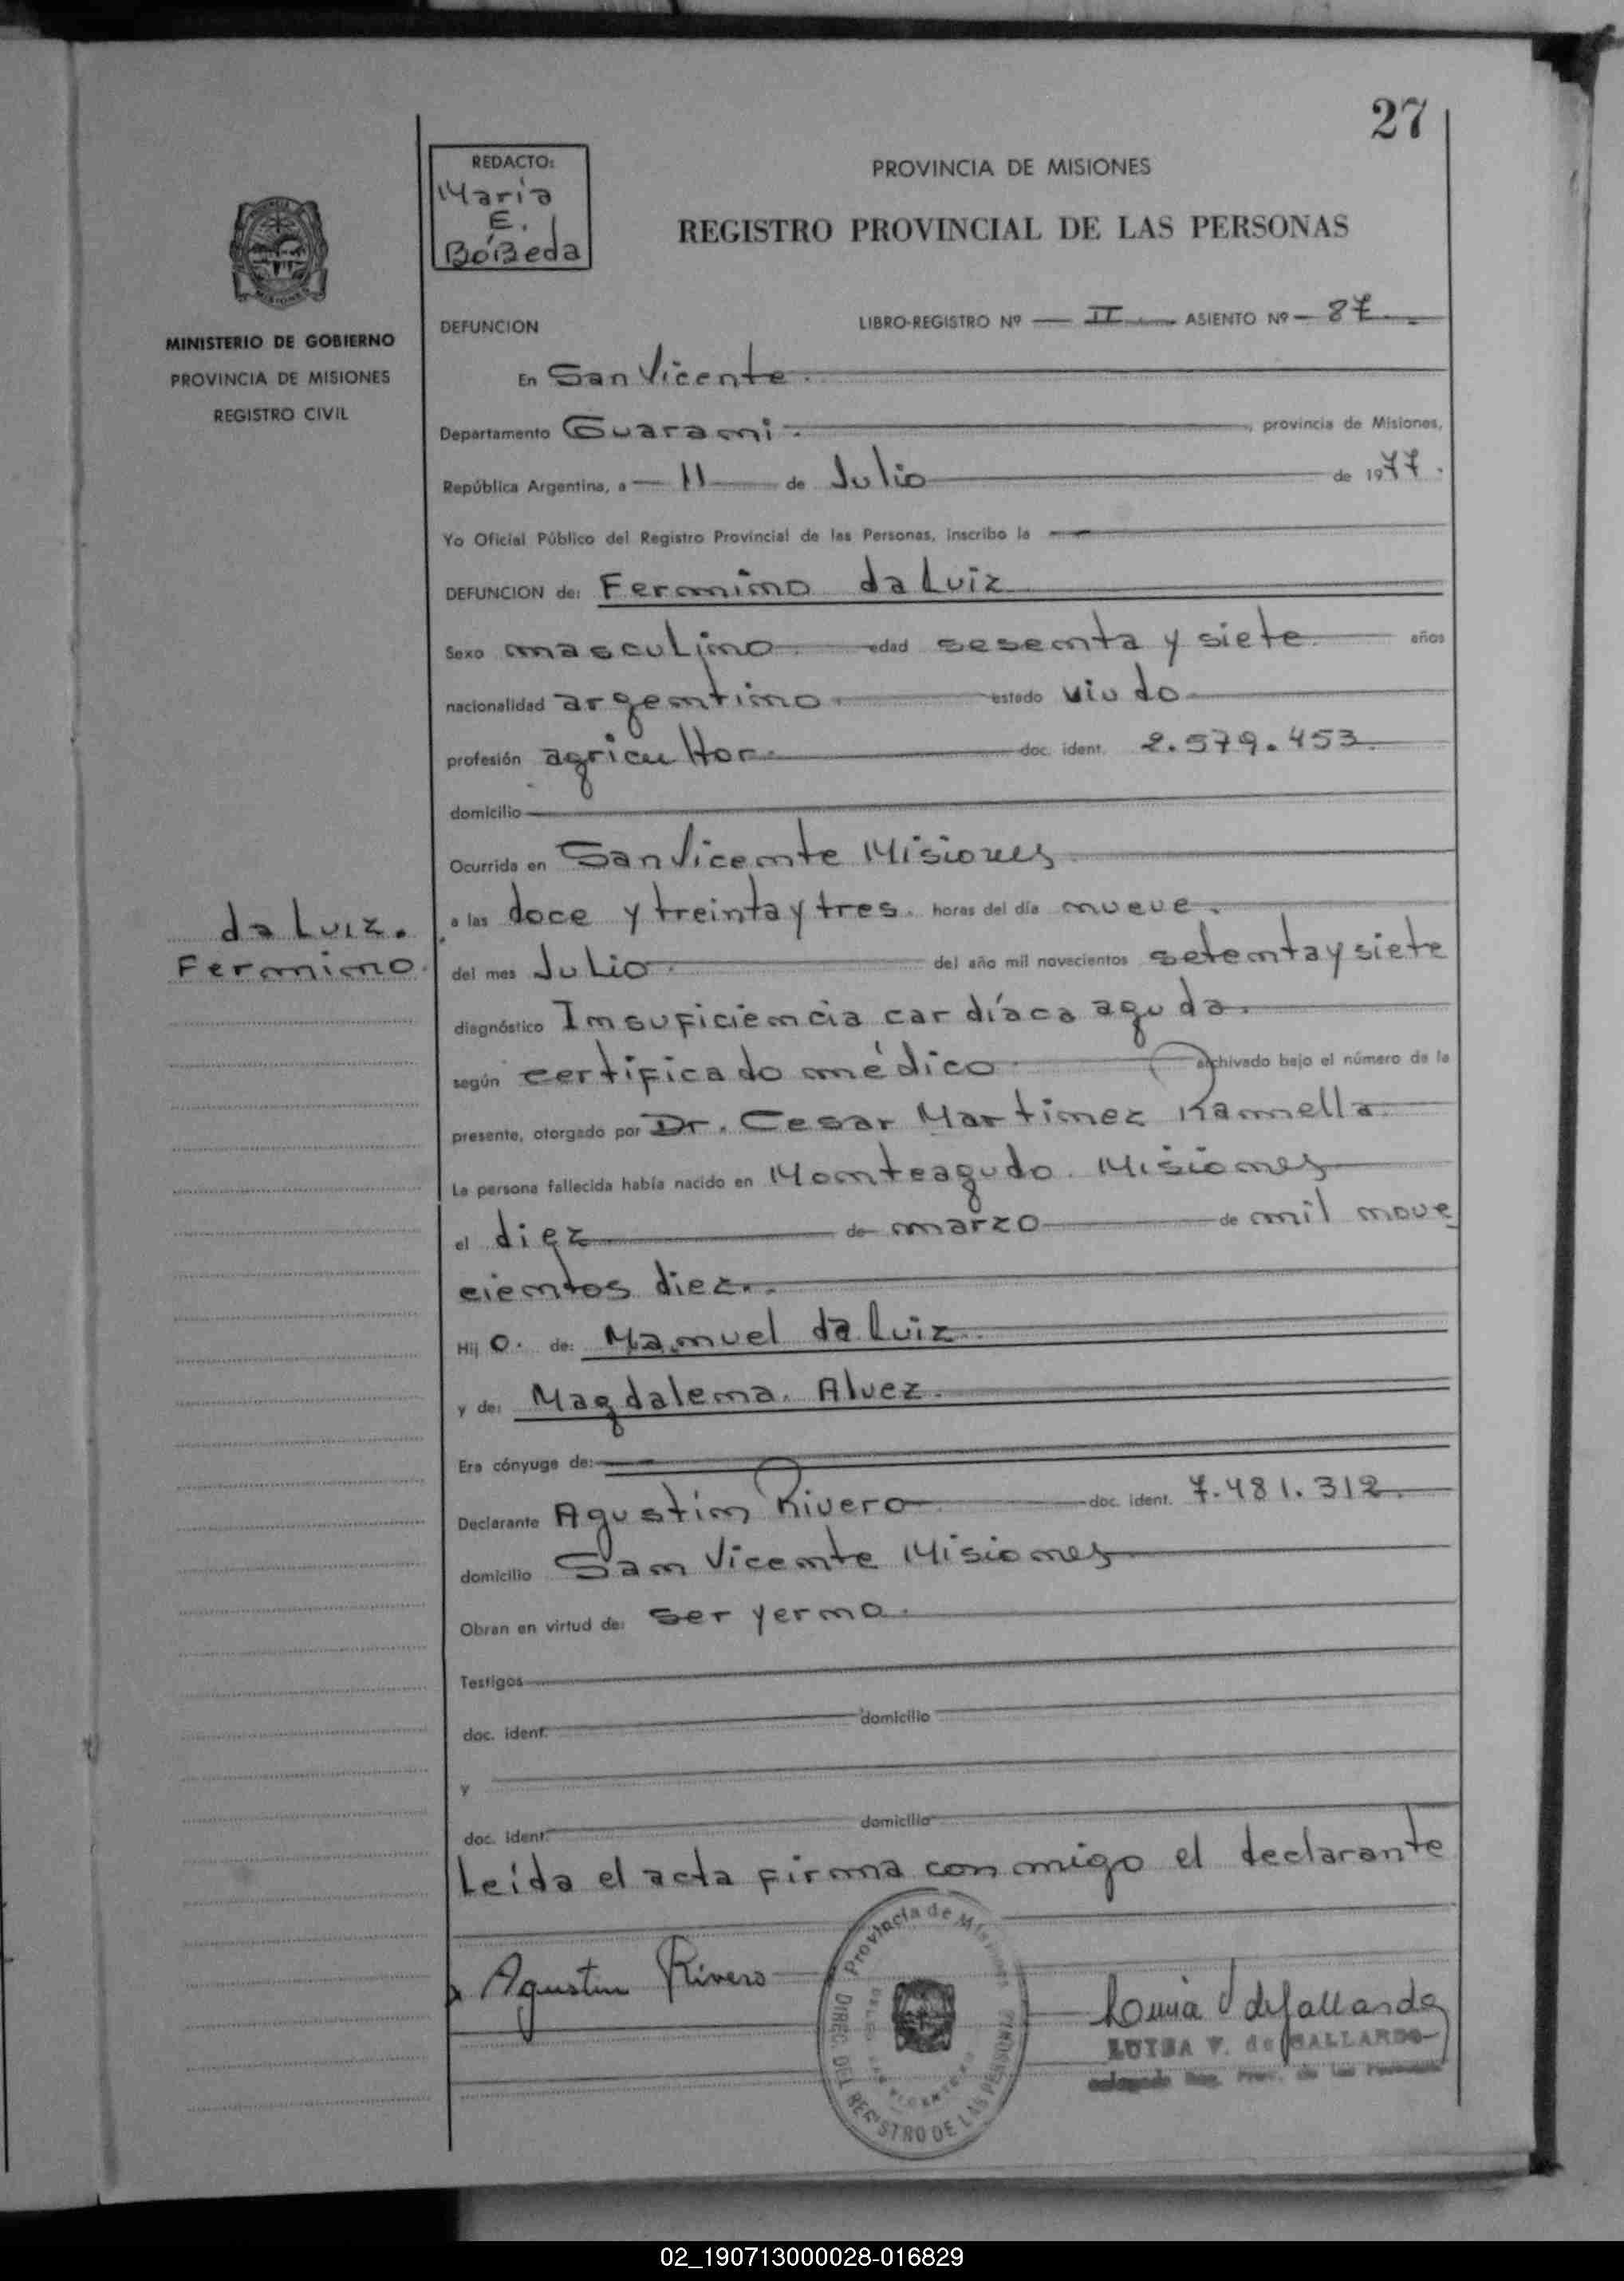 27
REDACTO:
Maria
E.
BóBeda
PROVINCIA DE MISIONES
REGISTRO PROVINCIAL DE LAS PERSONAS
MINISTERIO DE GOBIERNO
PROVINCIA DE MISIONES
REGISTRO CIVIL
DEFUNCION
LIBRO-REGISTRO Nº II ASIENTO Nº 87
En San Vicente.
Departamento Guarani. , provincia de Misiones,
República Argentina, a 11 de Julio de 1977.
Yo Oficial Público del Registro Provincial de las Personas, inscribo la
DEFUNCION de: Feronimo da Luiz
Sexo masculino. edad sesenta y siete años
nacionalidad argentino estado viudo
profesión agricultor. doc. ident. 2.579.453.
domicilio
Ocurrida en San Vicente Misiones
a las doce y treinta y tres. horas del día nueve.
da Luiz.
Feronimo.
del mes Julio. del año mil novecientos setenta y siete
diagnóstico Insuficiencia cardíaca aguda.
según certificado médico archivado bajo el número de la
presente, otorgado por Dr. Cesar Martinez Ramella
La persona fallecida había nacido en Monteagudo. Misiones
el diez de marzo de mil nove
cientos diez.
Hij o. de: Manuel da Luiz.
y de: Magdalena. Alvez.
Era cónyuge de:
Declarante Agustin Rivero doc. ident. 7.481.312.
domicilio San Vicente Misiones
Obran en virtud de: ser yerno.
Testigos
doc. ident. domicilio
y
doc. ident. domicilio
Leída el acta firma conmigo el declarante
Agustin Rivero
Provincia de Misiones
DIREC. DEL REGISTRO DE LAS PERSONAS
LUISA V. de GALLARDO
02_190713000028-016829